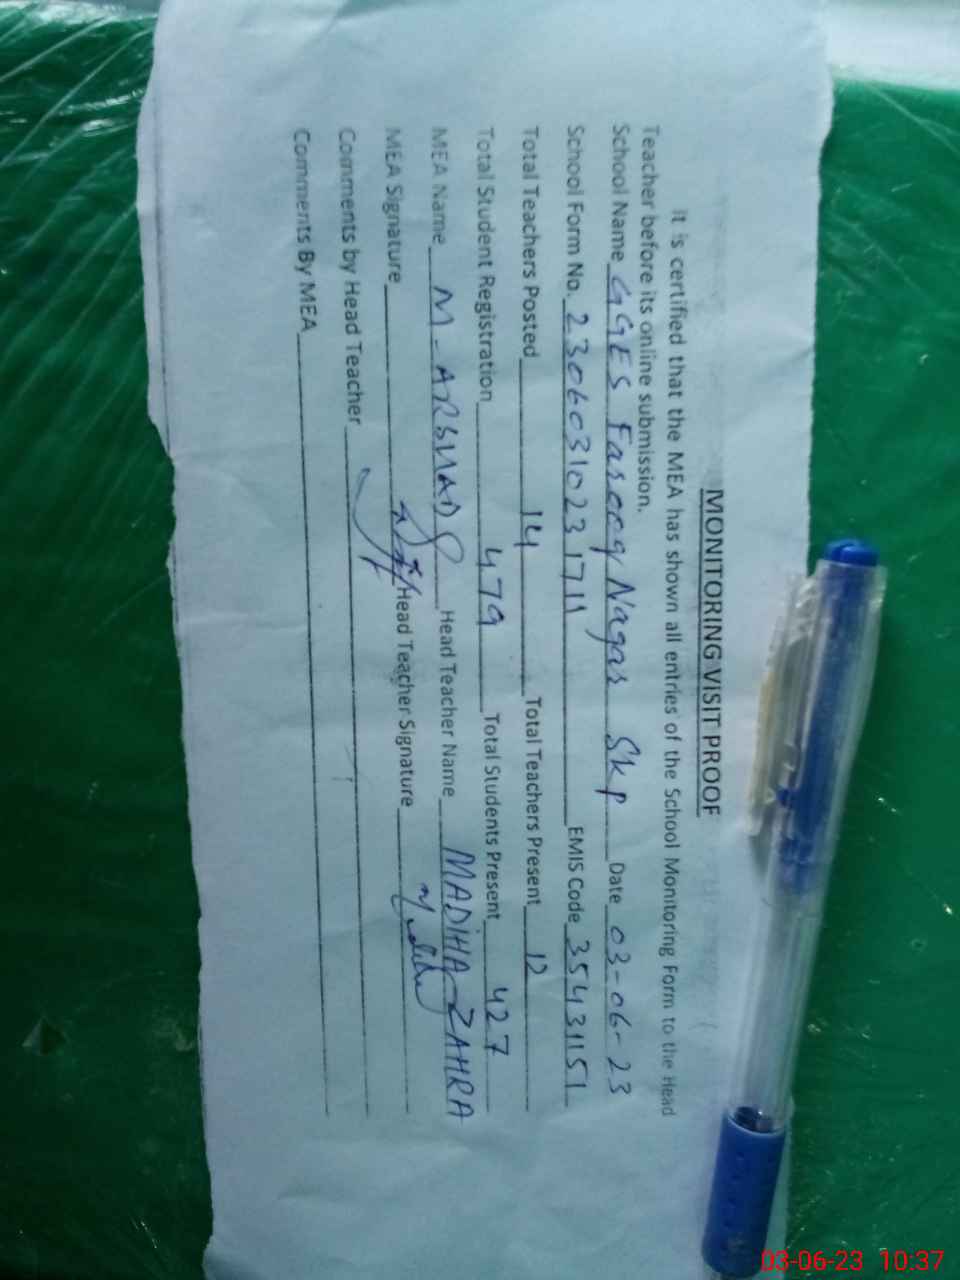 MONITORING VISIT PROOF
It is certified that the MEA has shown all entries of the School Monitoring Form to the Head
Teacher before its online submission.
School Name GGES Farooq Nagar Skp Date 03-06-23
School Form No. 2306031023 1711 EMIS Code 35431151
Total Teachers Posted 14 Total Teachers Present 12
Total Student Registration 479 Total Students Present 427
MEA Name M-ARSHAD Head Teacher Name MADIHA ZAHRA
MEA Signature Head Teacher Signature
Comments by Head Teacher
Comments By MEA
03-06-23 10:37